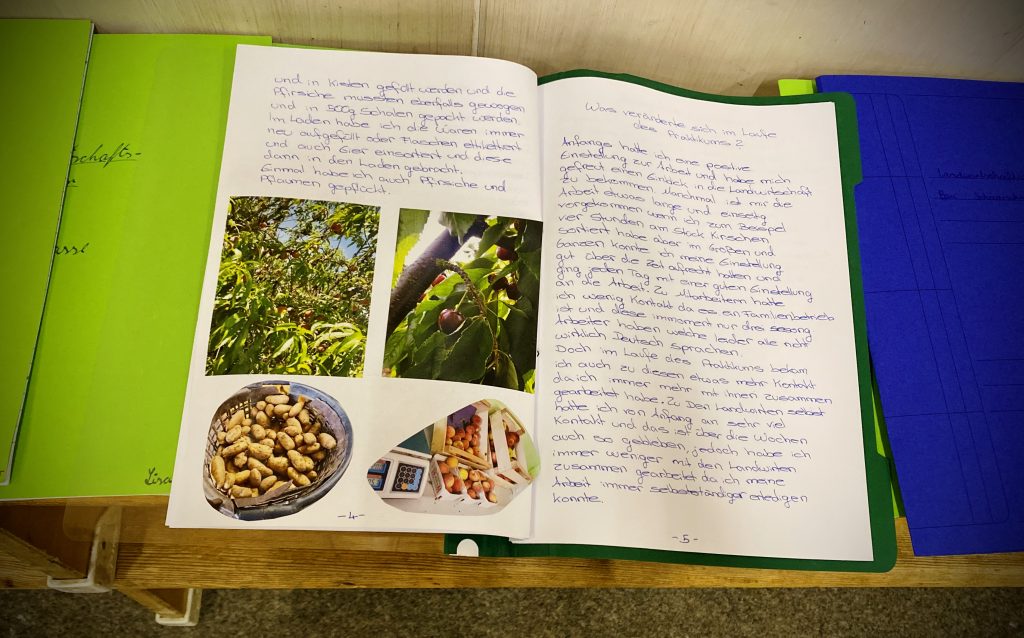 schafts-
asse
Lisa
und in Kisten gefüllt werden und die
Pfirsiche mussten ebenfalls gewogen
und in 500g Schalen gepackt werden.
Im Laden habe ich die Waren immer
neu aufgefüllt oder Flaschen ettikettiert
und auch Eier einsortiert und diese
dann in den Laden gebracht.
Einmal habe ich auch Pfirsiche und
Pflaumen gepflückt.
-4-
Was veränderte sich im Laufe
des Praktikums?
Anfangs hatte ich eine positive
Einstellung zur Arbeit und habe mich
gefreut einen Einblick in die Landwirtschaft
zu bekommen. Manchmal ist mir die
Arbeit etwas lange und einseitig
vorgekommen wenn ich zum Beispiel
vier Stunden am Stück Kirschen
sortiert habe aber im Großen und
Ganzen konnte ich meine Einstellung
gut über die Zeit aufrecht halten und
ging jeden Tag mit einer guten Einstellung
an die Arbeit. Zu Mitarbeitern hatte
ich wenig Kontakt da es ein Familienbetrieb
ist und diese nur drei
Arbeiter haben welche leider alle nicht
wirklich Deutsch sprachen.
Doch im Laufe des Praktikums bekam
ich auch zu diesen etwas mehr Kontakt
da ich immer mehr mit ihnen zusammen
gearbeitet habe. Zu Den Landwirten selbst
hatte ich von Anfang an sehr viel
Kontakt und das ist über die Wochen
auch so geblieben, jedoch habe ich
immer weniger mit den Landwirten
zusammen gearbeitet da ich meine
Arbeit immer selbstständiger erledigen
konnte.
-5-